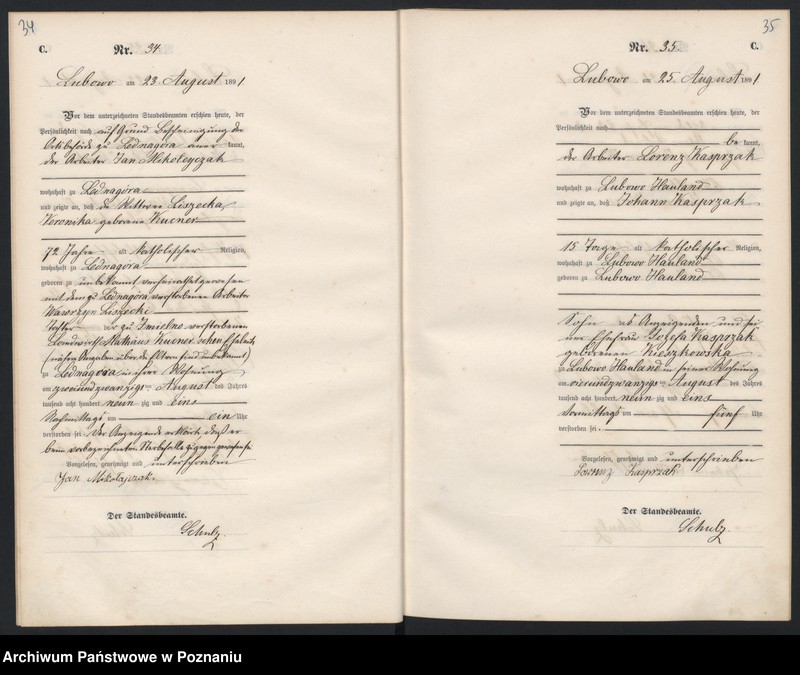 34
C.
Nr. 34.
Lubowo am 23. August 1891
Vor dem unterzeichneten Standesbeamten erschien heute, der
Persönlichkeit nach auf Grund Bescheinigung der
Ortsbehörde zu Lednagora anerkannt,
der Arbeiter Jan Mikoleyczak
wohnhaft zu Lednagora
und zeigte an, daß die Wittwe Liszecka,
Veronika geborene Kucner
72 Jahre alt katholischer Religion,
wohnhaft zu Lednagora
geboren zu unbekannt verheirathet gewesen
mit dem zu Lednagora verstorbenen Arbeiter
Wawrzyn Liszecki
Tochter der zu Imielno verstorbenen
Landwirth Mathäus Kucner'schen Eheleute
(nähere Angaben über die Eltern sind unbekannt)
zu Lednagora in ihrer Wohnung
am zweiundzwanzigsten August des Jahres
tausend acht hundert neunzig und eins
Nachmittags um ein Uhr
verstorben sei. Der Anzeigende erklärt, daß er
beim vorbezeichneten Sterbefalle zugegen gewesen sei
Vorgelesen, genehmigt und unterschrieben
Jan Mikołajczak.
Der Standesbeamte.
Schulz.
35
C.
Nr. 35.
Lubowo am 25. August 1891
Vor dem unterzeichneten Standesbeamten erschien heute, der
Persönlichkeit nach
bekannt,
der Arbeiter Lorenz Kasprzak
wohnhaft zu Lubowo Hauland
und zeigte an, daß Johann Kasprzak
15 Tage alt katholischer Religion,
wohnhaft zu Lubowo Hauland
geboren zu Lubowo Hauland
Sohn des Anzeigenden und sei
ner Ehefrau Josefa Kasprzak
geborenen Kieszkowska
zu Lubowo Hauland in seiner Wohnung
am vierundzwanzigsten August des Jahres
tausend acht hundert neunzig und eins
Vormittags um fünf Uhr
verstorben sei.
Vorgelesen, genehmigt und unterschrieben
Lorenz Kasprzak
Der Standesbeamte.
Schulz.
Archiwum Państwowe w Poznaniu